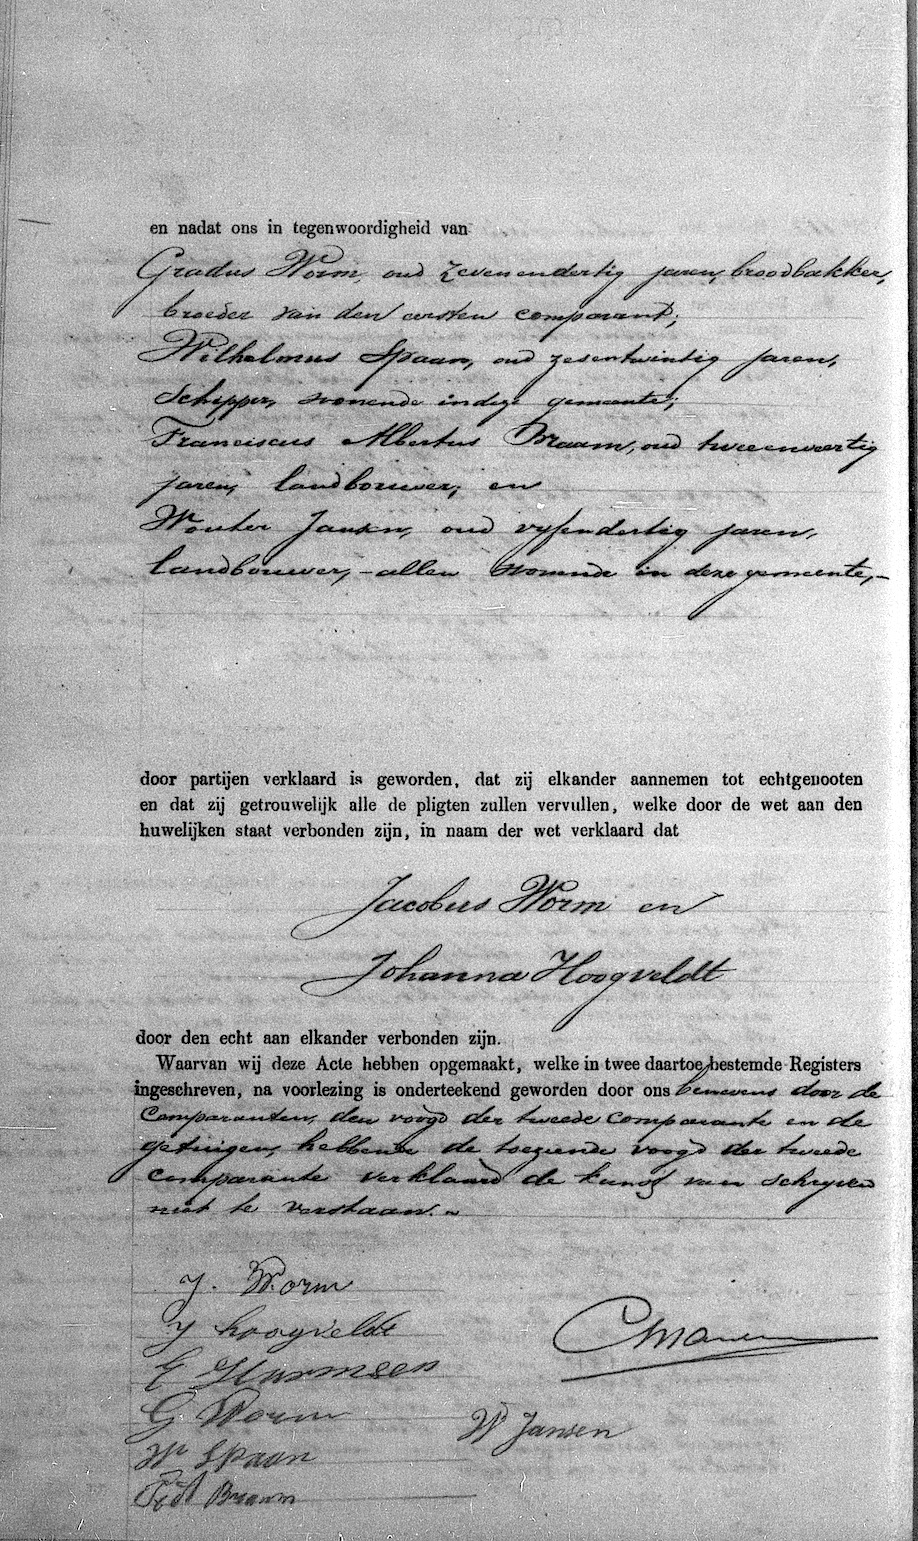 en nadat ons in tegenwoordigheid van
Gradus Worm, oud zevenendertig jaren, broodbakker,
broeder van den eersten comparant;
Wilhelmus Spaan, oud zesentwintig jaren,
Schipper, wonende in deze gemeente;
Franciscus Albertus Braam, oud tweeenveertig
jaren, landbouwer, en
Wouter Jansen, oud vyfendertig jaren,
landbouwer, - allen wonende in deze gemeente, -
door partijen verklaard is geworden, dat zij elkander aannemen tot echtgenooten
en dat zij getrouwelijk alle de pligten zullen vervullen, welke door de wet aan den
huwelijken staat verbonden zijn, in naam der wet verklaard dat
Jacobus Worm en
Johanna Hoogveldt
door den echt aan elkander verbonden zijn.
Waarvan wij deze Acte hebben opgemaakt, welke in twee daartoe bestemde Registers
ingeschreven, na voorlezing is onderteekend geworden door ons benevens door de
Comparanten, den voogd der tweede comparante en de
getuigen, hebbende de toeziende voogd der tweede
comparante verklaard de kunst van schryven
niet te verstaan.
J. Worm
J hoogveldt
E Harmsen
G Worm
W Spaan
W Jansen
Braam